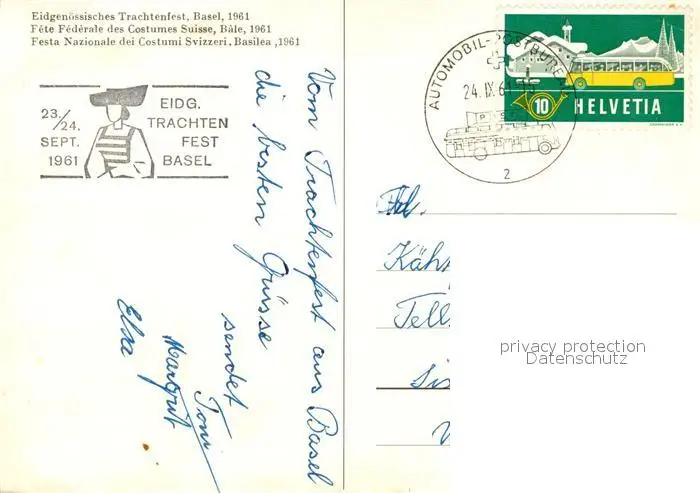 Eidgenössisches Trachtenfest, Basel, 1961
Fête Fédérale des Costumes Suisse, Bâle, 1961
Festa Nazionale dei Costumi Svizzeri, Basilea ,1961
23./
24.
SEPT.
1961
EIDG.
TRACHTEN
FEST
BASEL
Vom Trachtenfest aus Basel
die besten Grüsse
sendet
Toni
Margrit
Elsa
AUTOMOBIL-POSTBUREAU
24.IX.61
2
10 HELVETIA
privacy protection
Datenschutz